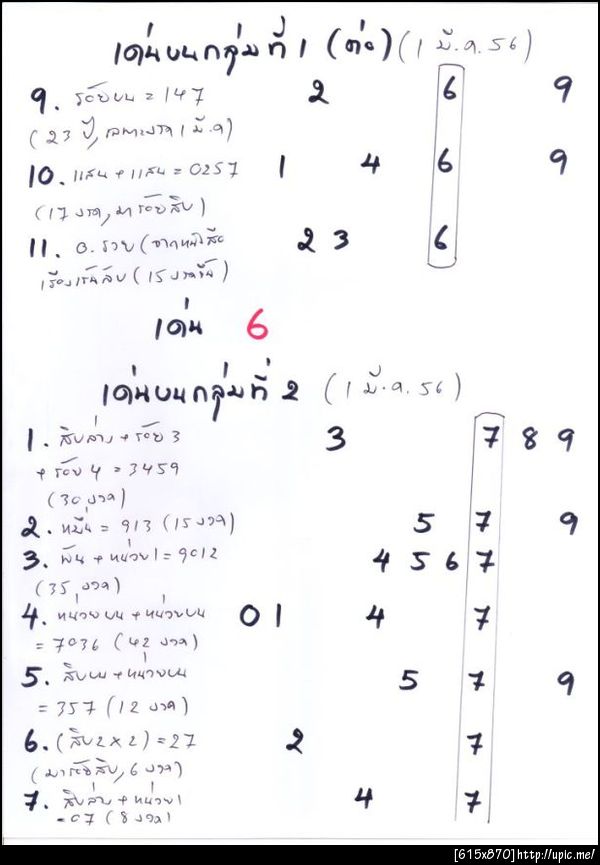 เด่นบนกลุ่มที่ 1 (ต่อ) (1 มี.ค. 56)
9. ร้อยบน = 147 2 6 9
(23 ปี, เฉพาะงวด 1 มี.ค)
10. แสน + แสน = 0257 1 4 6 9
(17 งวด, มาร้อยสิบ)
11. อ.รวย (จากหนังสือ 2 3 6
เรืองเร้นลับ (15 งวดขึ้น)
เด่น 6
เด่นบนกลุ่มที่ 2 (1 มี.ค. 56)
1. สิบล่าง + ร้อย 3 3 7 8 9
+ ร้อย 4 = 3459
(30 งวด)
2. หมื่น = 913 (15 งวด) 5 7 9
3. พัน + หน่วย 1 = 9012 4 5 6 7
(35 งวด)
4. หน่วยบน + หน่วยบน 0 1 4 7
= 7036 (42 งวด)
5. สิบบน + หน่วยบน 5 7 9
= 357 (12 งวด)
6. (สิบ 2 x 2) = 27 2 7
(มาร้อยสิบ, 6 งวด)
7. สิบล่าง + หน่วย 1 4 7
= 07 (8 งวด)
[615x870] http://upic.me/